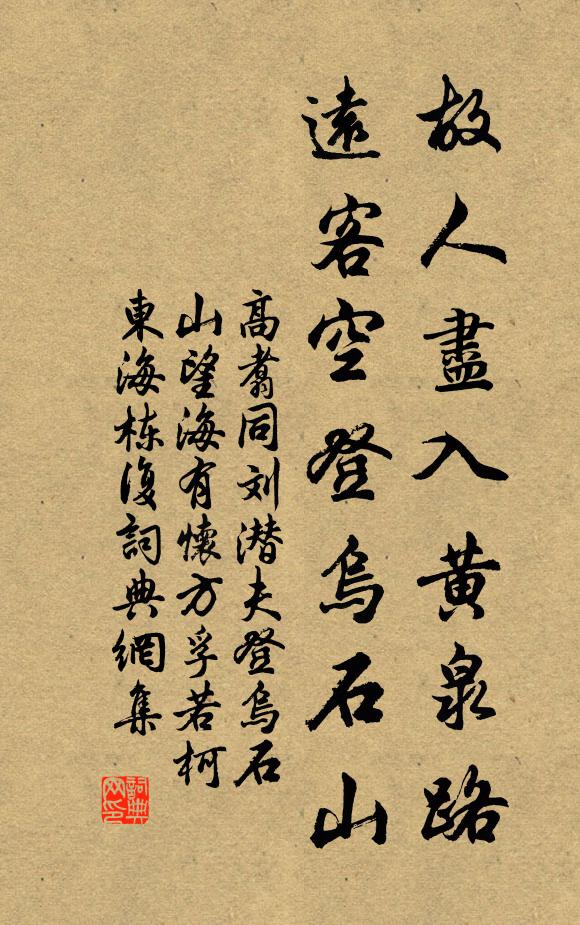 故人盡入黄泉路
遠客空登烏石山
高翥同刘潜夫登烏石
山望海有懷方孚若柯
東海栋復詞典網集
詞典
网印